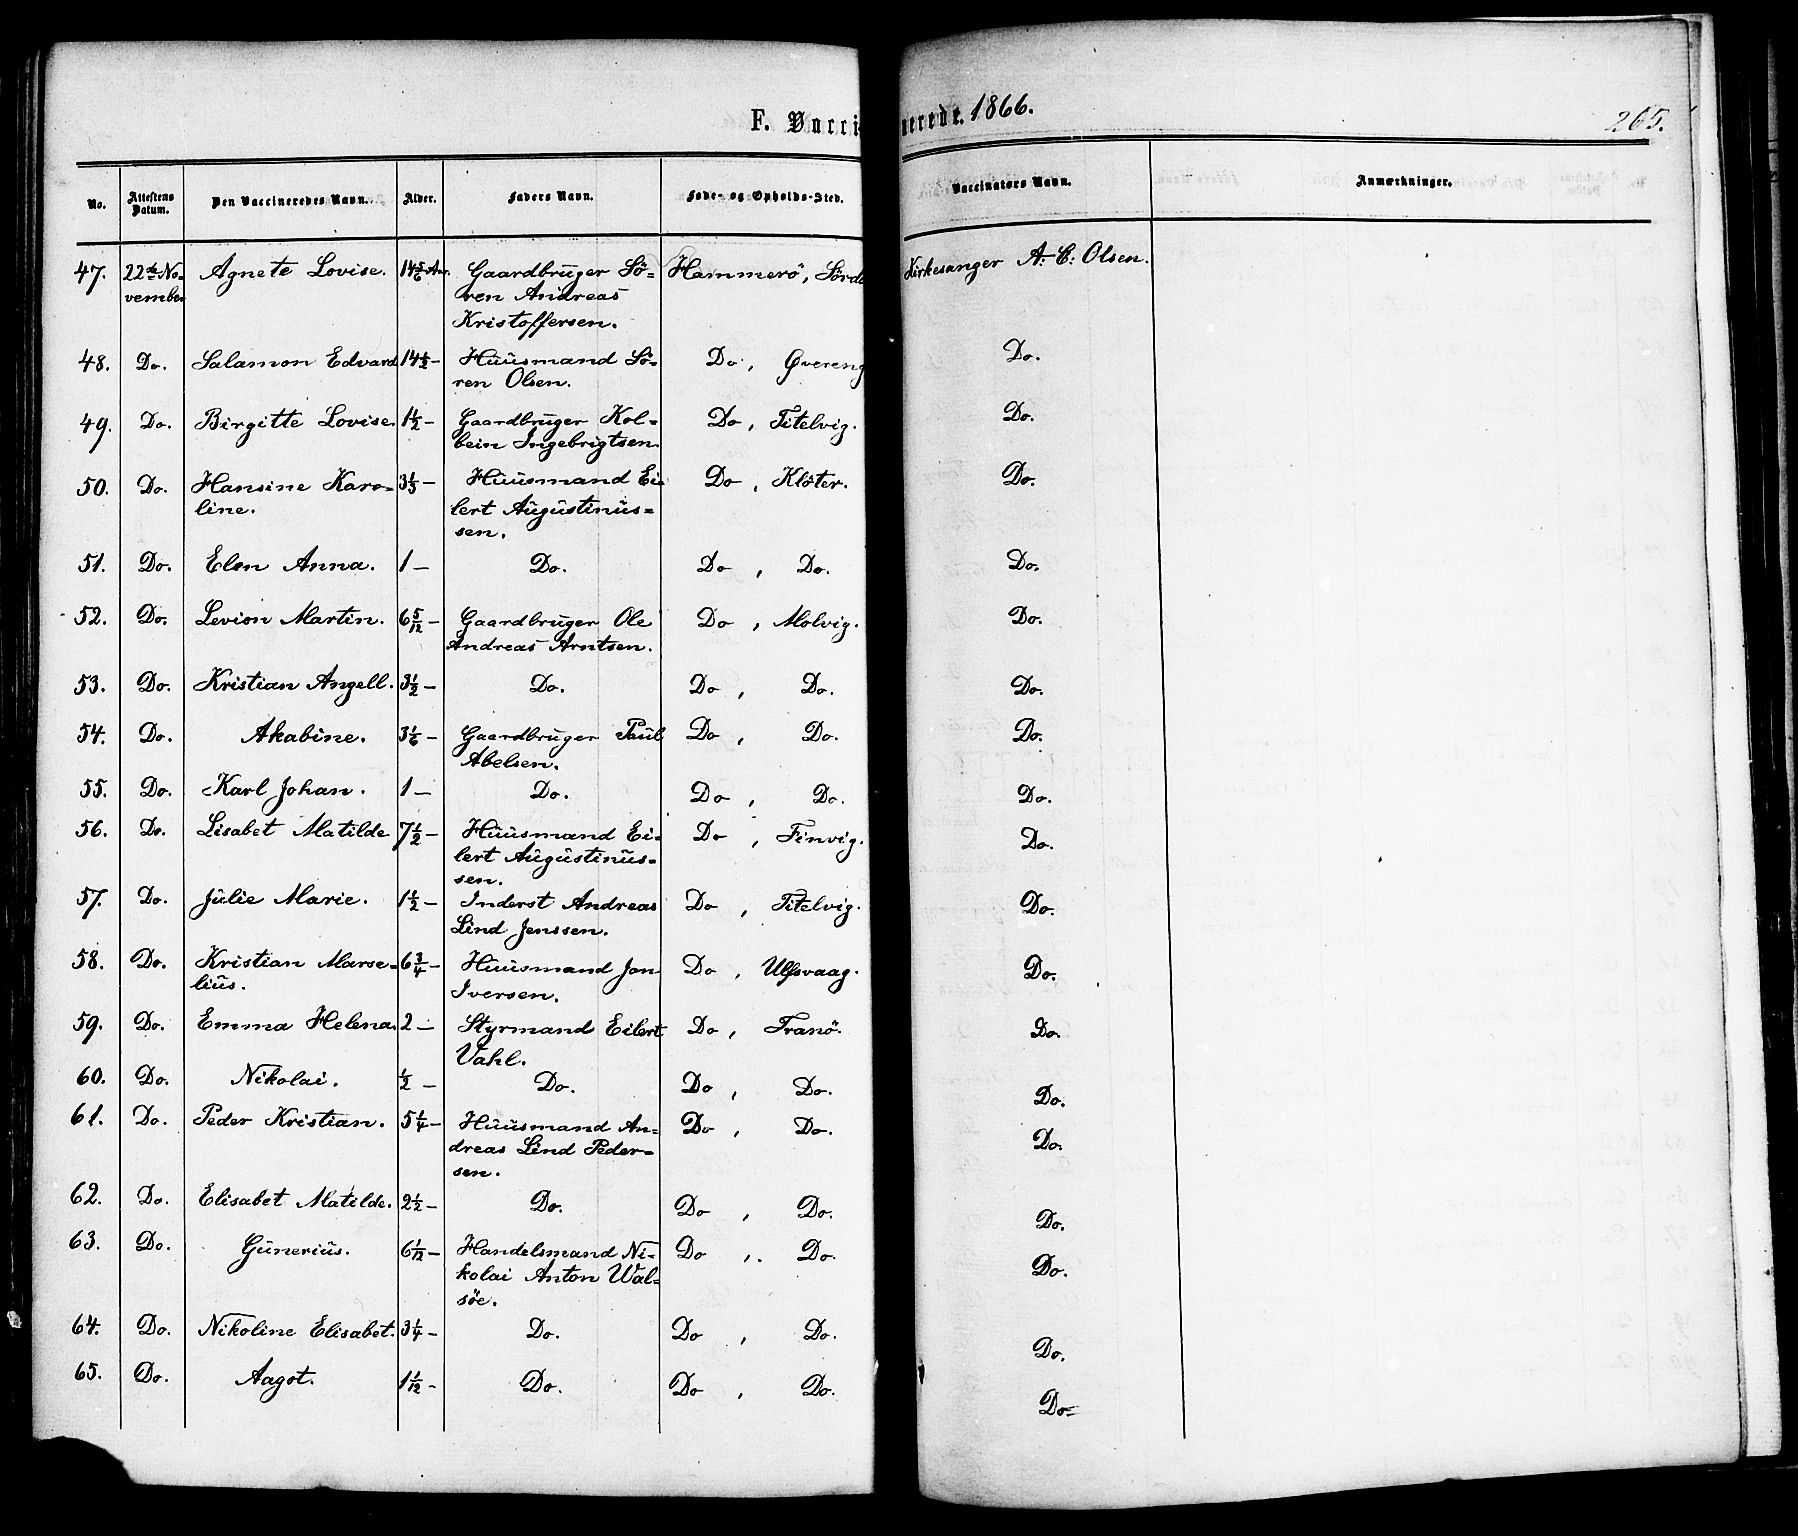 F. Vaccinerede. 1866.
265.
No. Attestens Datum. Den Vaccineredes Navn. Alder. Faders Navn. Føde- og Opholds-Sted. Vaccinators Navn. Anmærkninger.
47. 22de No- Agnete Lovise. 14 5/6 Aar. Gaardbruger Sö- Hammerö, Kirkesanger A: C: Olsen.
vember ren Andreas
Kristoffersen.
48. Do. Salamon Edvard 14 1/2 – Huusmand Sö- Do, Øvereng Do.
ren Olsen.
49. Do. Birgitte Lovise. 1 1/2 – Gaardbruger Kol- Do, Titelvig. Do.
bein Ingebrigtsen.
50. Do. Hansine Karo- 3 1/3 – Huusmand Ei- Do, Klöter. Do.
line. lert Augustinus-
sen.
51. Do. Elen Anna. 1 – Do. Do, Do. Do.
52. Do. Levion Martin. 6 5/12 – Gaardbruger Ole Do, Molvig. Do.
Andreas Arntsen.
53. Do. Kristian Angell. 3 1/2 – Do. Do, Do. Do.
54. Do. Akabine. 3 1/6 – Gaardbruger Paul Do, Do. Do.
Abelsen.
55. Do. Karl Johan. 1 – Do. Do, Do. Do.
56. Do. Lisabet Matilde 7 1/2 – Huusmand Ei- Do, Finvig. Do.
lert Augustinus-
sen.
57. Do. Julie Marie. 1 1/2 – Inderst Andreas Do, Titelvig. Do.
Lind Jenssen.
58. Do. Kristian Marse- 6 3/4 – Huusmand Jon Do, Ulfsvaag. Do.
lius. Iversen.
59. Do. Emma Helena. 2 – Styrmand Eilert Do, Tranö. Do.
Vahl.
60. Do. Nikolai. 1/2 – Do. Do, Do. Do.
61. Do. Peder Kristian. 5 1/4 – Huusmand An- Do, Do. Do.
dreas Lind Peder-
sen.
62. Do. Elisabet Matilde. 2 1/2 – Do. Do, Do. Do.
63. Do. Gunerius. 6 1/12 – Handelsmand Ni- Do, Do. Do.
kolai Anton Wal-
söe.
64. Do. Nikoline Elisabet. 3 1/4 – Do. Do, Do. Do.
65. Do. Aagot. 1 1/12 – Do. Do, Do. Do.